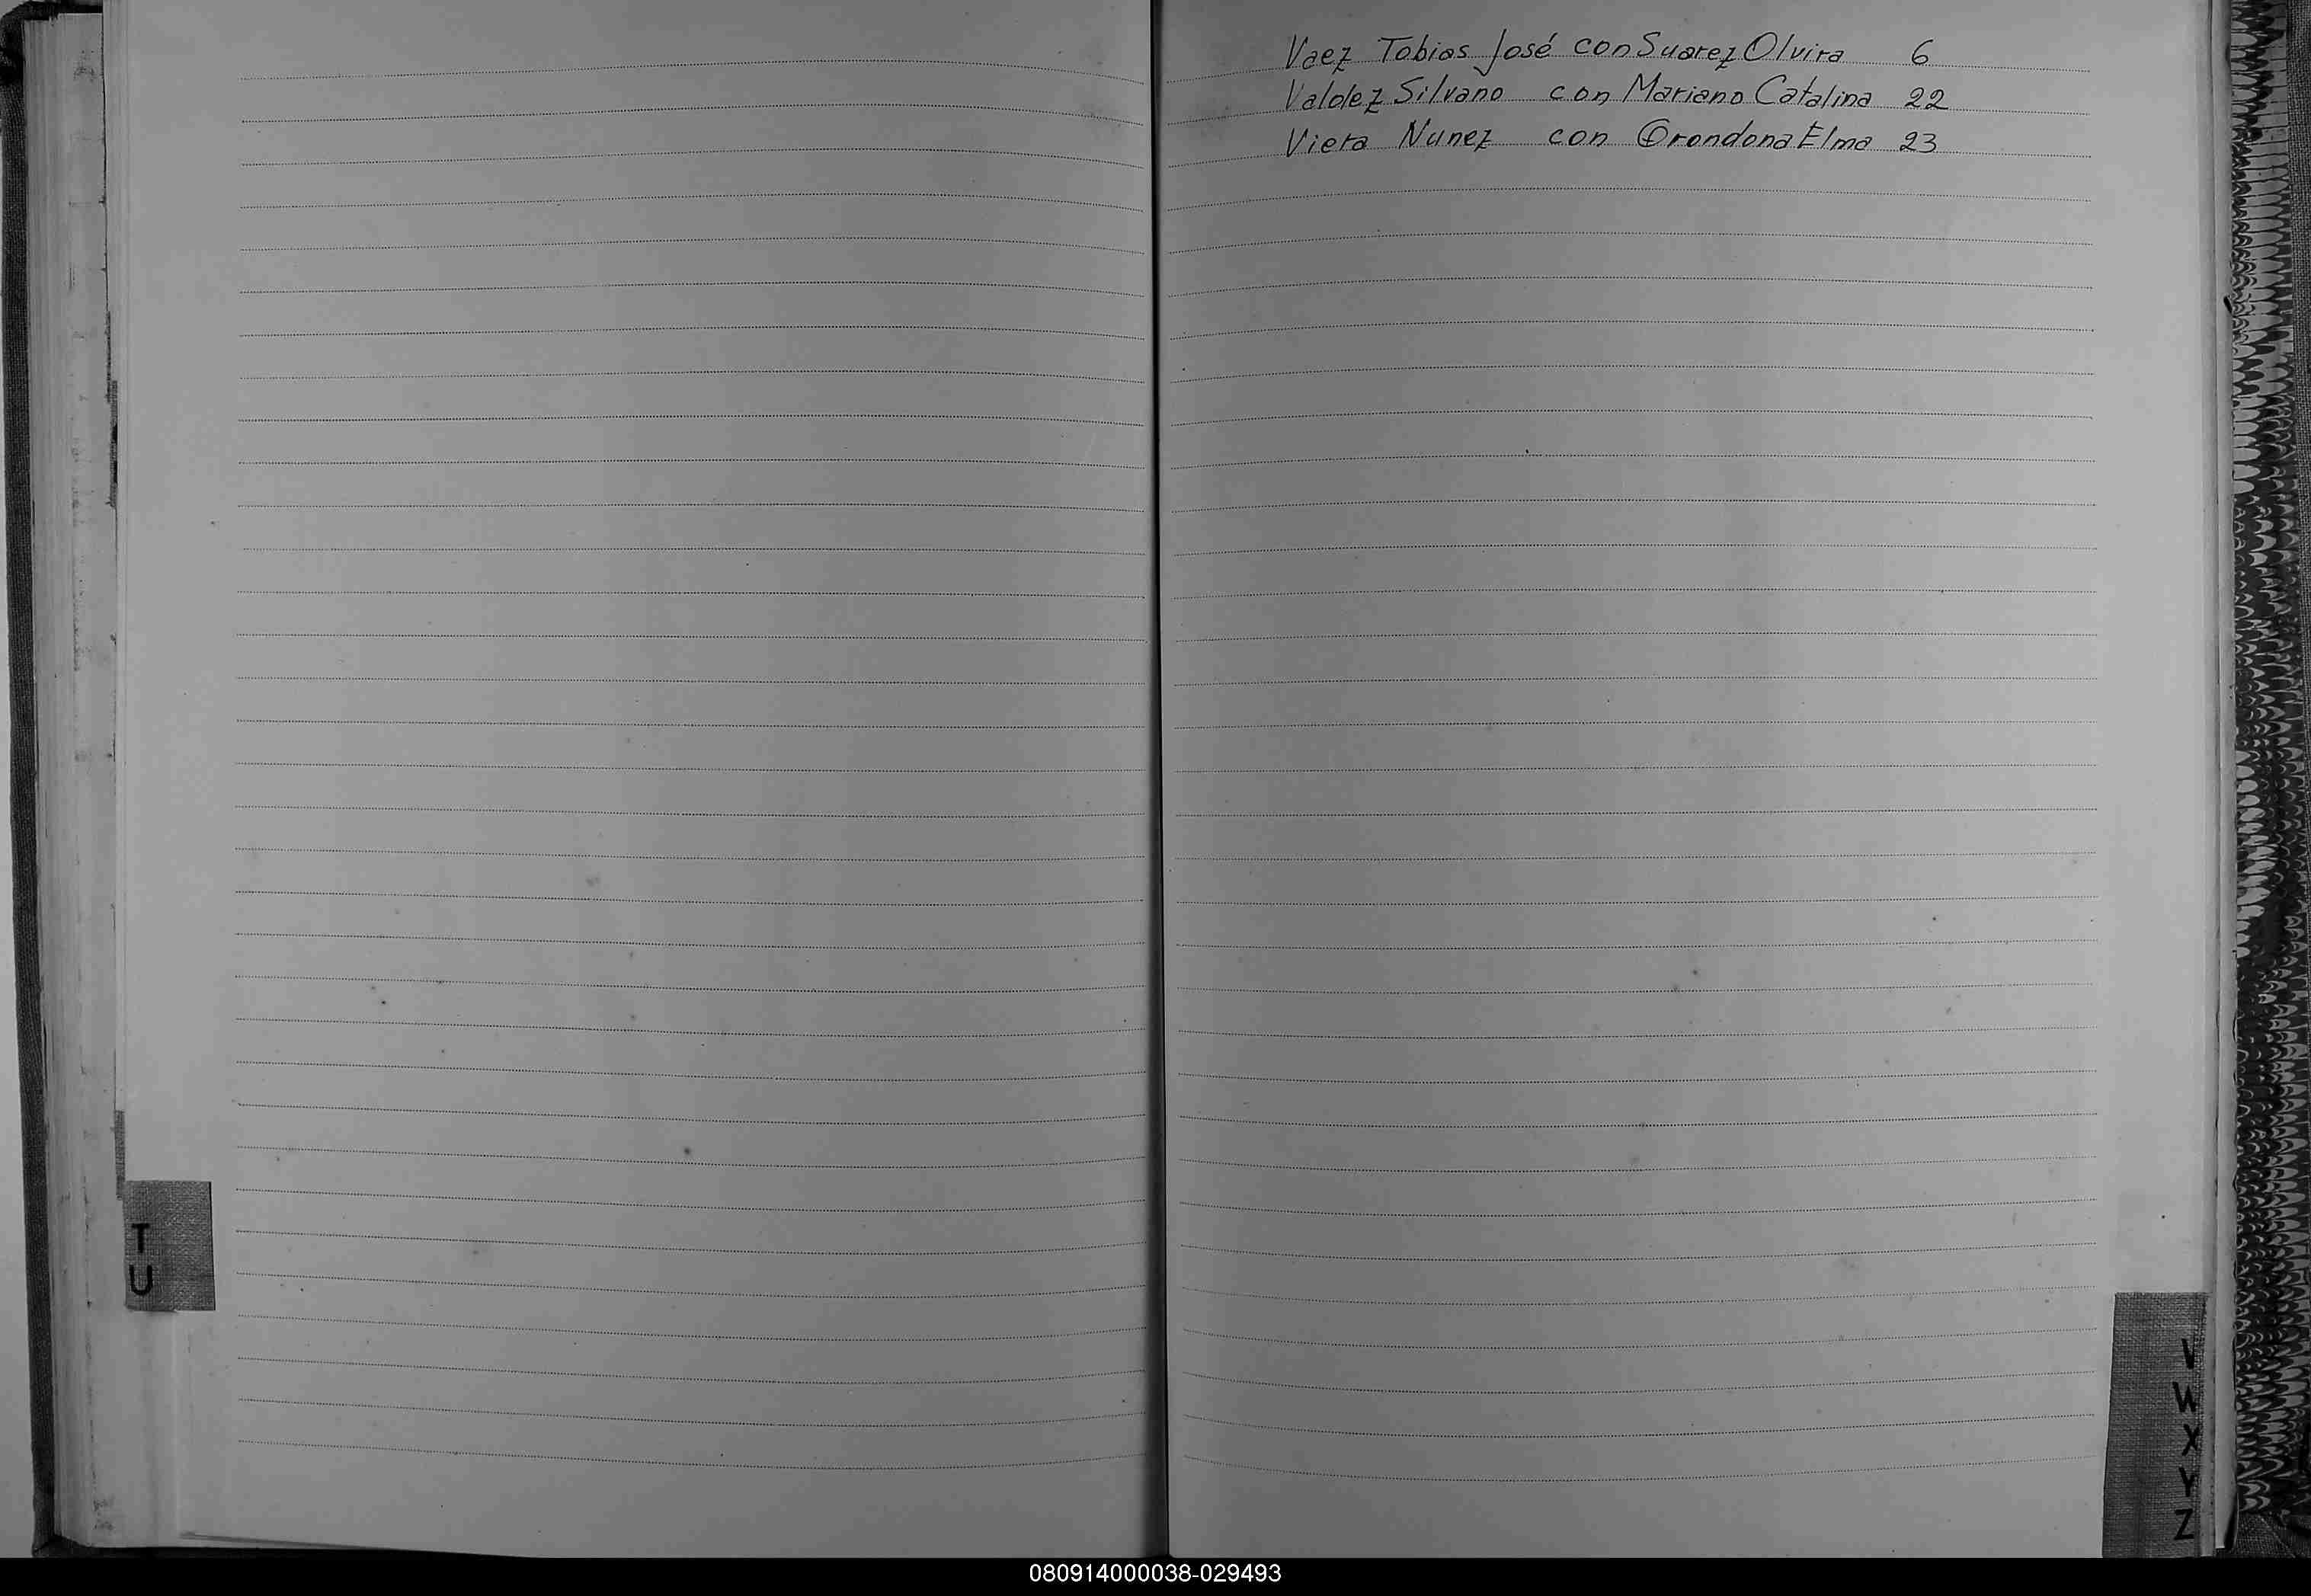 Vaez Tobias José con Suarez Olvira 6
Valdez Silvano con Mariano Catalina 22
Viera Nunez con Orondona Elma 23
T
U
V
W
X
Y
Z
080914000038-029493